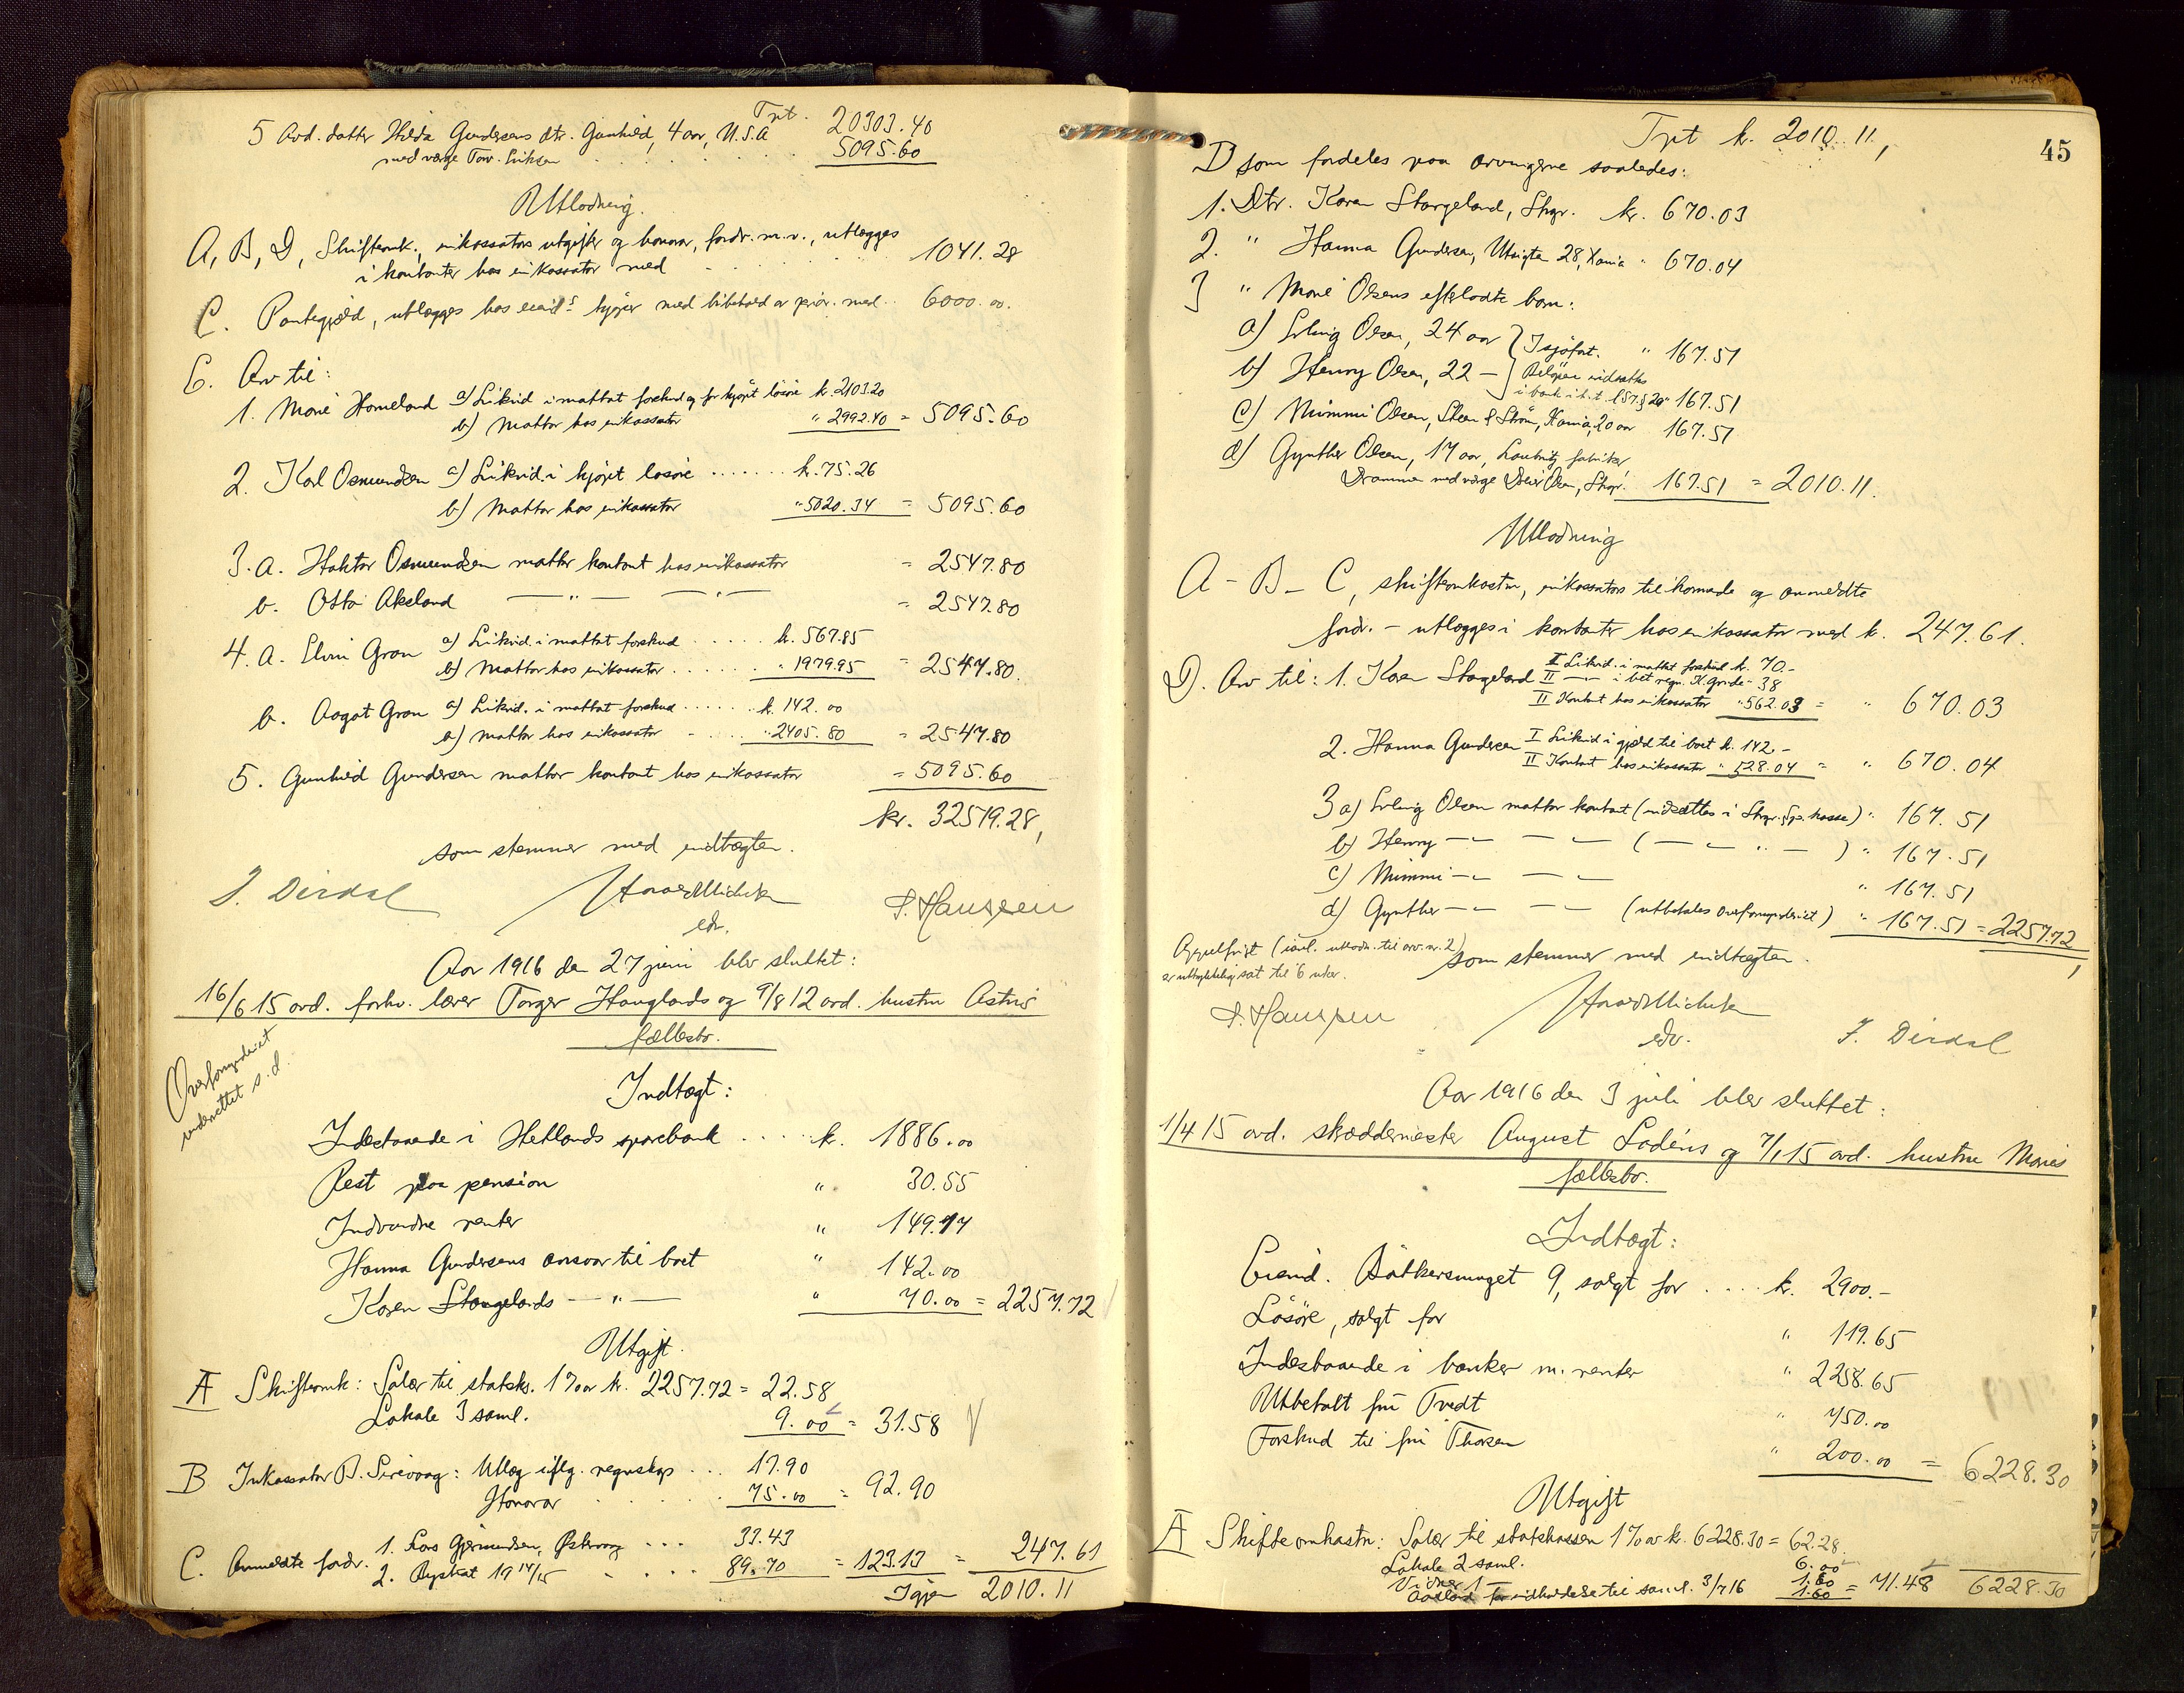 Trpt. 20303.40
5 Avd. datter Hilda Gundersens dtr. Gunhild, 4 aar, U.S.A
med værge Tov. Eriksen . . . . . . 5095.60
Utlodning.
A, B, D, Skifteomk., inkassators utgifter og honorar, fordr. m.v., utlægges
i kontanter hos inkassator med . . . . 1041.28
C. Pantegjæld, utlægges hos eiend.s kjøper med bibehold av prior. med . . 6000.00.
E. Arv til:
1. Marie Homeland a) Likvid i mottat forskud og for kjøpt løsøre k. 2103.20
b) Mottar hos inkassator " 2992.40 = 5095.60
2. Karl Osmundsen a) Likvid. i kjøpt løsøre . . . . . . k. 75.26
b) Mottar hos inkassator " 5020.34 = 5095.60
3. a. Haktor Osmundsen mottar kontant hos inkassator = 2547.80
b. Otto Aksland — " — — " — = 2547.80
4. a. Elvin Gron a) Likvid. i mottat forskud . . . . . k. 567.85
b) Mottar hos inkassator . . . . . . " 1979.95 = 2547.80.
b. Aagot Gron a) Likvid. i mottat forskud . . . . . . k. 142.00
a) Mottar hos inkassator . . . . " 2405.80 = 2547.80
5. Gunhild Gundersen mottar kontant hos inkassator = 5095.60
kr. 32519.28,
som stemmer med indtægten.
J. Dirdal
edv.
P. Hanssen
Aar 1916 den 27 juni blev sluttet:
16/6 15 avd. forhv. lærer Torger Hauglands og 9/8 12 avd. hustru Astrids
fællesbo.
Overformynderiet
underrettet s.d.
Indtægt:
Indestaaende i Hetlands sparebank . . . . . k. 1886.00
Rest paa pension " 30.55
Indvundne renter " 149.17
Hanna Gundersens ansvar til boet " 142.00
Karen Stangelands — " — " 70.00 = 2257.72
Utgift.
A Skifteomk: Salær til statsk. 1% av k. 2257.72 = 22.58
Lokale 3 saml. 9.00 = 31.58
B Inkassator B. Sirevaag: Utlæg iflg. regnskap . . . 17.90
Honorar . . . . . 75.00 = 92.90
C. Anmeldte fordr. 1. Lars Gjermundsen, Østervaag . . . 33.43
2. Byskat 19 14/15 . . . . . 89.70 = 123.13 = 247.61
Igjen 2010.11
45
Trpt k. 2010.11,
D som fordeles paa arvingerne saaledes:
1. Dtr. Karen Stangeland, Stvgr. kr. 670.03
2. " Hanna Gundersen, Utsigten 28, Xania " 670.04
3 " Marie Olsens efterladte barn:
a) Erling Olsen, 24 aar } Tsjøfart. " 167.51
b) Henry Olsen, 22 — } Beløpene indsættes
i bank i h.t. l. § 7. § 20 " 167.51
c) Mimmi Olsen, Steen & Strøm, Xania, 20 aar 167.51
d) Gynther Olsen, 17 aar, fabriker,
Drammen med værge Olsen, Stvgr. 167.51 = 2010.11.
Utlodning
A - B - C, skifteomkostn, inkassators tilkomende og anmeldte
fordr. - utlægges i kontanter hos inkassator med k. 247.61.
D. Arv til: 1. Karen Stangeland I Likvid. i mottat forskud k. 70.-
II — i bet. regn. — " 38
II Kontant hos inkassator " 562.03 = " 670.03
2. Hanna Gundersen I Likvid i gjæld til boet k. 142.-
II Kontant hos inkassator " 528.04 = " 670.04
3 a) Erling Olsen mottar kontant (indsættes i Stvgr. Sp.kasse) " 167.51
b) Henry — " — — " — ( — " — " — ) " 167.51
c) Mimmi — " — — " — " 167.51
d) Gynther — " — — " — (utbetales overformynderiet) " 167.51 = 2257.72
Appelfrist (incl. utlodn. til arv. nr. 2)
er uttrykkelig sat til 6 uker.
som stemmer med indtægten.
P. Hanssen
edv.
J. Dirdal
Aar 1916 den 3 juli blev sluttet:
1/4 15 avd. skræddermester August Lodéns og 7/1 15 avd. hustru Maries
fællesbo.
Indtægt:
Eiend. Bøtkersmuget 9, solgt for . . . . k. 2900.-
Løsøre, solgt for " 119.65
Indestaaende i banker m. renter " 2258.65
Utbetalt fru Tvedt " 750.00
Forskud til fru Thorsen " 200.00 = 6228.30
Utgift
A Skifteomkostn: Salær til statskassen 1% av k. 6228.30 = 62.28.
Lokale 2 saml. 6.00
Vidner 1 — 1.60
for indkaldelse til saml. 3/7 16 1.60 = 71.48 6228.30